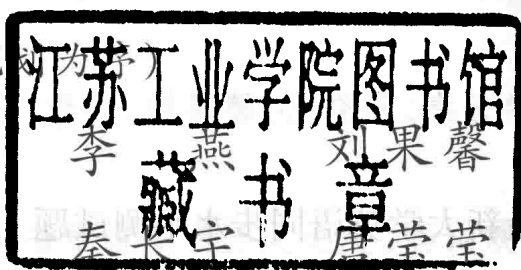 为序)
江苏工业学院图书馆
李燕 刘果馨
藏书章
秦长宇 唐莹莹